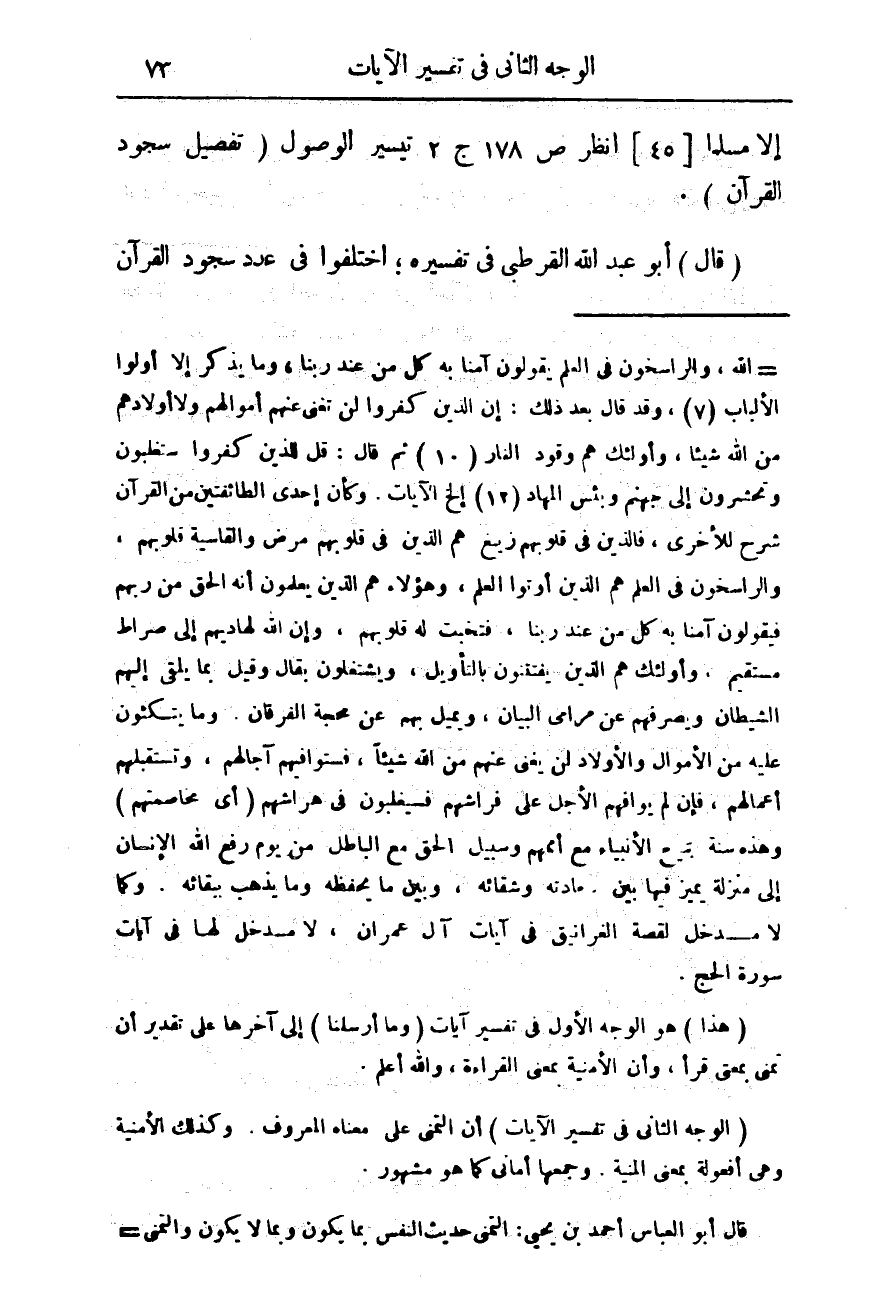 الوجه الثانى فى تفسير الآيات ٧٣
إلا مسلما [ ٤٥ ] انظر ص ١٧٨ ج ٢ تيسير الوصول ( تفصيل سجود
القرآن ) .
( قال ) أبو عبد الله القرطبى فى تفسيره ؛ اختلفوا فى عدد سجود القرآن
= الله ، والراسخون فى العلم يقولون آمنا به كل من عند ربنا ، وما يذكر إلا أولوا
الألباب (٧) ، وقد قال بعد ذلك : إن الذين كفروا لن تغنى عنهم أموالهم ولا أولادهم
من الله شيئا ، وأولئك هم وقود النار ( ١٠ ) ثم قال : قل للذين كفروا ستغلبون
وتحشرون إلى جهنم وبئس المهاد (١٢) إلخ الآيات . وكأن إحدى الطائفتين من القرآن
شرح للأخرى ، فالذين فى قلوبهم زيغ هم الذين فى قلوبهم مرض والقاسية قلوبهم ،
والراسخون فى العلم هم الذين أوتوا العلم ، وهؤلاء هم الذين يعلمون أنه الحق من ربهم
فيقولون آمنا به كل من عند ربنا ، فتخبت له قلوبهم ، وإن الله لهاديهم إلى صراط
مستقيم . وأولئك هم الذين يفتتنون بالتأويل ، ويشتغلون بقال وقيل بما يلقى إليهم
الشيطان ويصرفهم عن مرامى البيان ، ويميل بهم عن محجة الفرقان . وما يتكئون
عليه من الأموال والأولاد لن يغنى عنهم من الله شيئاً ، فستوافيهم آجالهم ، وتستقبلهم
أعمالهم ، فإن لم يوافهم الأجل على فراشهم فسيغلبون فى هراشهم ( أى مخاصمتهم )
وهذه سنة جميع الأنبياء مع أممهم وسبيل الحق مع الباطل من يوم رفع الله الإنسان
إلى منزلة يميز فيها بين سعادته وشقائه ، وبين ما يحفظه وما يذهب ببقائه . وكما
لا مدخل لقصة الغرانيق فى آيات آل عمران ، لا مدخل لها فى آيات
سورة الحج .
( هذا ) هو الوجه الأول فى تفسير آيات ( وما أرسلنا ) إلى آخرها على تقدير أن
تمنى بمعنى قرأ ، وأن الأمنية بمعنى القراءة ، والله أعلم .
( الوجه الثانى فى تفسير الآيات ) أن التمنى على معناه المعروف . وكذلك الأمنية
وهى أفعولة بمعنى المنية . وجمعها أمانى كما هو مشهور .
قال أبو العباس أحمد بن يحيى : التمنى حديث النفس بما يكون وبما لا يكون والتمنى =